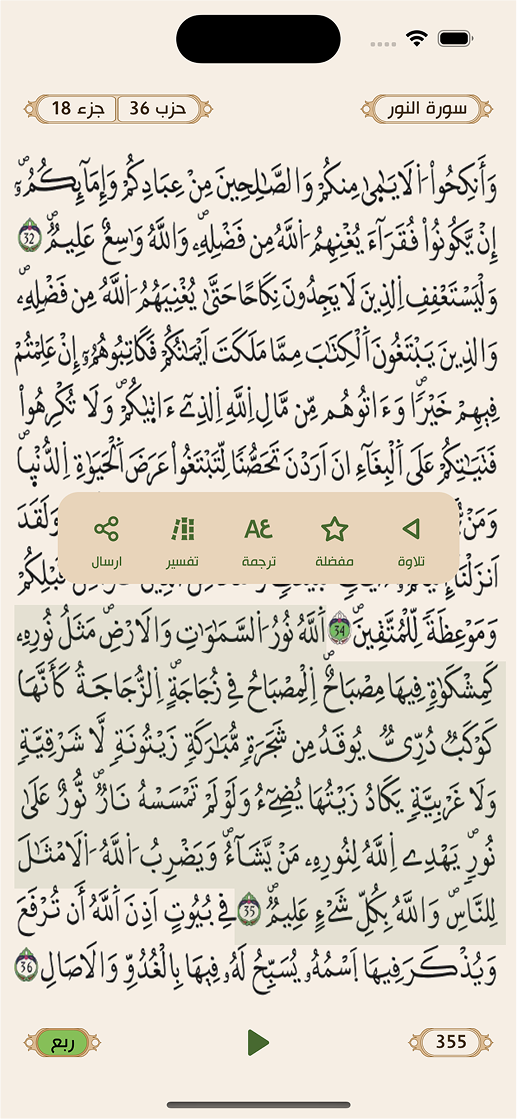 سورة النور
حزب 36 جزء 18
وَأَنكِحُواْ اَ۬لَايَٰم۪يٰ مِنكُمْ وَالصَّٰلِحِينَ مِنْ عِبَادِكُمْ وَإِمَآئِكُمُۥٓۖ
إِنْ يَّكُونُواْ فُقَرَآءَ يُغْنِهِمُ اُ۬للَّهُ مِن فَضْلِهِۦۖ وَاللَّهُ وَٰسِعٌ عَلِيمٞۖ 32
وَلْيَسْتَعْفِفِ اِ۬لذِينَ لَا يَجِدُونَ نِكَاحاً حَتَّىٰ يُغْنِيَهُمُ اُ۬للَّهُ مِن فَضْلِهِۦۖ
وَالذِينَ يَبْتَغُونَ اَ۬لْكِتَٰبَ مِمَّا مَلَكَتَ اَيْمَٰنُكُمْ فَكَاتِبُوهُمُۥٓ إِنْ عَلِمْتُمْ
فِيهِمْ خَيْراٗۖ وَءَاتُوهُم مِّن مَّالِ اِ۬للَّهِ اِ۬لذِےٓ ءَات۪يٰكُمْۖ وَلَا تُكْرِهُواْ
فَتَيَٰتِكُمْ عَلَى اَ۬لْبِغَآءِ انَ اَرَدْنَ تَحَصُّناٗ لِّتَبْتَغُواْ عَرَضَ اَ۬لْحَيَوٰةِ اِ۬لدُّنْي۪اۖ
وَمَنْ وَلَقَدَ
تلاوة
مفضلة
ترجمة
تفسير
ارسال
اَنزَلْنَآ قَبْلِكُمْ
وَمَوْعِظَةٗ لِّلْمُتَّقِينَۖ 34 اَ۬للَّهُ نُورُ اُ۬لسَّمَٰوَٰتِ وَالَارْضِۖ مَثَلُ نُورِهِۦ
كَمِشْكَوٰةٖ فِيهَا مِصْبَاحٌۖ اِ۬لْمِصْبَاحُ فِے زُجَاجَةٍۖ اِ۬لزُّجَاجَةُ كَأَنَّهَا
كَوْكَبٞ دُرِّيّٞ يُوقَدُ مِن شَجَرَةٖ مُّبَٰرَكَةٖ زَيْتُونَةٖ لَّا شَرْقِيَّةٖ
وَلَا غَرْبِيَّةٖ يَكَادُ زَيْتُهَا يُضِےٓءُ وَلَوْ لَمْ تَمْسَسْهُ نَارٞۖ نُّورٌ عَلَىٰ
نُورٖۖ يَهْدِے اِ۬للَّهُ لِنُورِهِۦ مَنْ يَّشَآءُۖ وَيَضْرِبُ اُ۬للَّهُ اُ۬لَامْثَٰلَ
لِلنَّاسِۖ وَاللَّهُ بِكُلِّ شَےْءٍ عَلِيمٞۖ 35 فِے بُيُوتٍ اَذِنَ اَ۬للَّهُ أَن تُرْفَعَ
وَيُذْكَرَ فِيهَا اَ۪سْمُهُۥ يُسَبِّحُ لَهُۥ فِيهَا بِالْغُدُوِّ وَالَاصَالِ 36
355
ربع